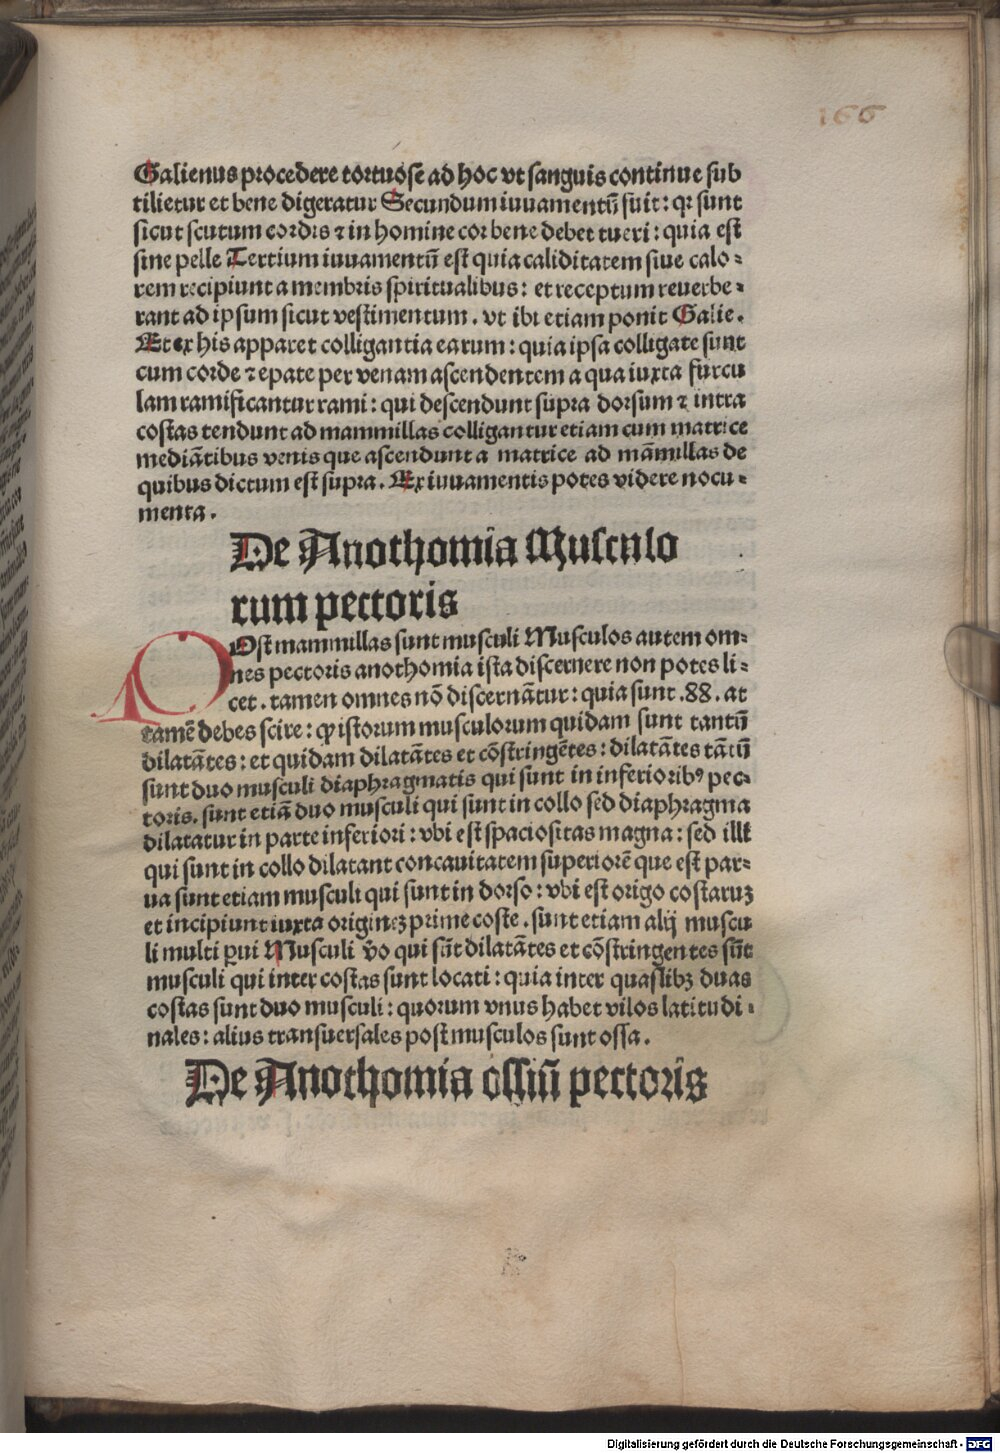 166
Galienus procedere tortuose ad hoc vt sanguis continue sub
tilietur et bene digeratur Secundum iuuamentū fuit: qꝛ sunt
sicut scutum cordis ⁊ in homine cor bene debet tueri: quia est
sine pelle Tertium iuuamentū est quia caliditatem siue calo⸗
rem recipiunt a membris spiritualibus: et receptum reuerbe⸗
rant ad ipsum sicut vestimentum. vt ibi etiam ponit Galie.
Et ex his apparet colligantia earum: quia ipsa colligate sunt
cum corde ⁊ epate per venam ascendentem a qua iuxta furcu
lam ramificantur rami: qui descendunt supra dorsum ⁊ intra
costas tendunt ad mammillas colligantur etiam cum matrice
mediātibus venis que ascendunt a matrice ad māmillas de
quibus dictum est supra. Ex iuuamentis potes videre nocu⸗
menta.
De Anothomia Musculo
rum pectoris
POst mammillas sunt musculi Musculos autem om⸗
nes pectoris anothomia ista discernere non potes li⸗
cet. tamen omnes nō discernātur: quia sunt .88. at
tamē debes scire: ꝙ istorum musculorum quidam sunt tantū
dilatātes: et quidam dilatātes et cōstringētes: dilatātes tātū
sunt duo musculi diaphragmatis qui sunt in inferiorib⁹ pec⸗
toris. sunt etiā duo musculi qui sunt in collo sed diaphragma
dilatatur in parte inferiori: vbi est spaciositas magna: sed illi
qui sunt in collo dilatant concauitatem superiorē que est par⸗
ua sunt etiam musculi qui sunt in dorso: vbi est origo costaruꝫ
et incipiunt iuxta origineꝫ prime coste. sunt etiam alij muscu
li multi ꝑui Musculi v̄o qui sūt dilatātes et cōstringentes sūt
musculi qui inter costas sunt locati: quia inter quaslibꝫ duas
costas sunt duo musculi: quorum vnus habet vilos latitudi⸗
nales: alius transuersales post musculos sunt ossa.
De Anothomia ossiū pectoris
Digitalisierung gefördert durch die Deutsche Forschungsgemeinschaft - DFG